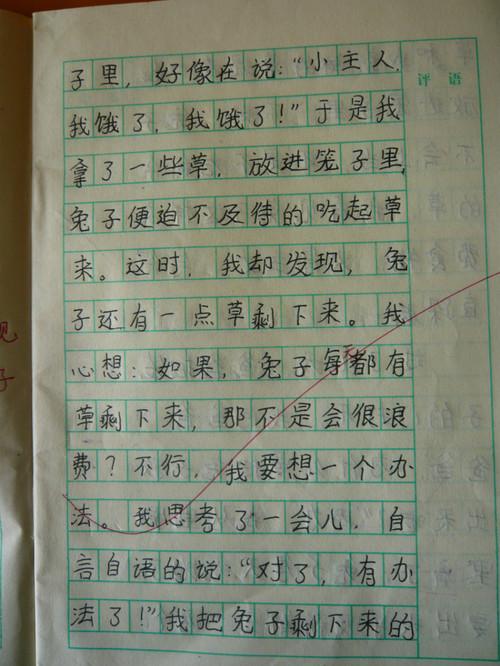 子里，好像在说：“小主人，
评语
我饿了，我饿了！”于是我
拿了一些草，放进笼子里，
兔子便迫不及待的吃起草
来。这时，我却发现，兔
子还有一点草剩下来。我
心想：如果，兔子每天都有
草剩下来，那不是会很浪
费？不行，我要想一个办
法。我思考了一会儿，自
言自语的说：“对了，有办
法了！”我把兔子剩下来的